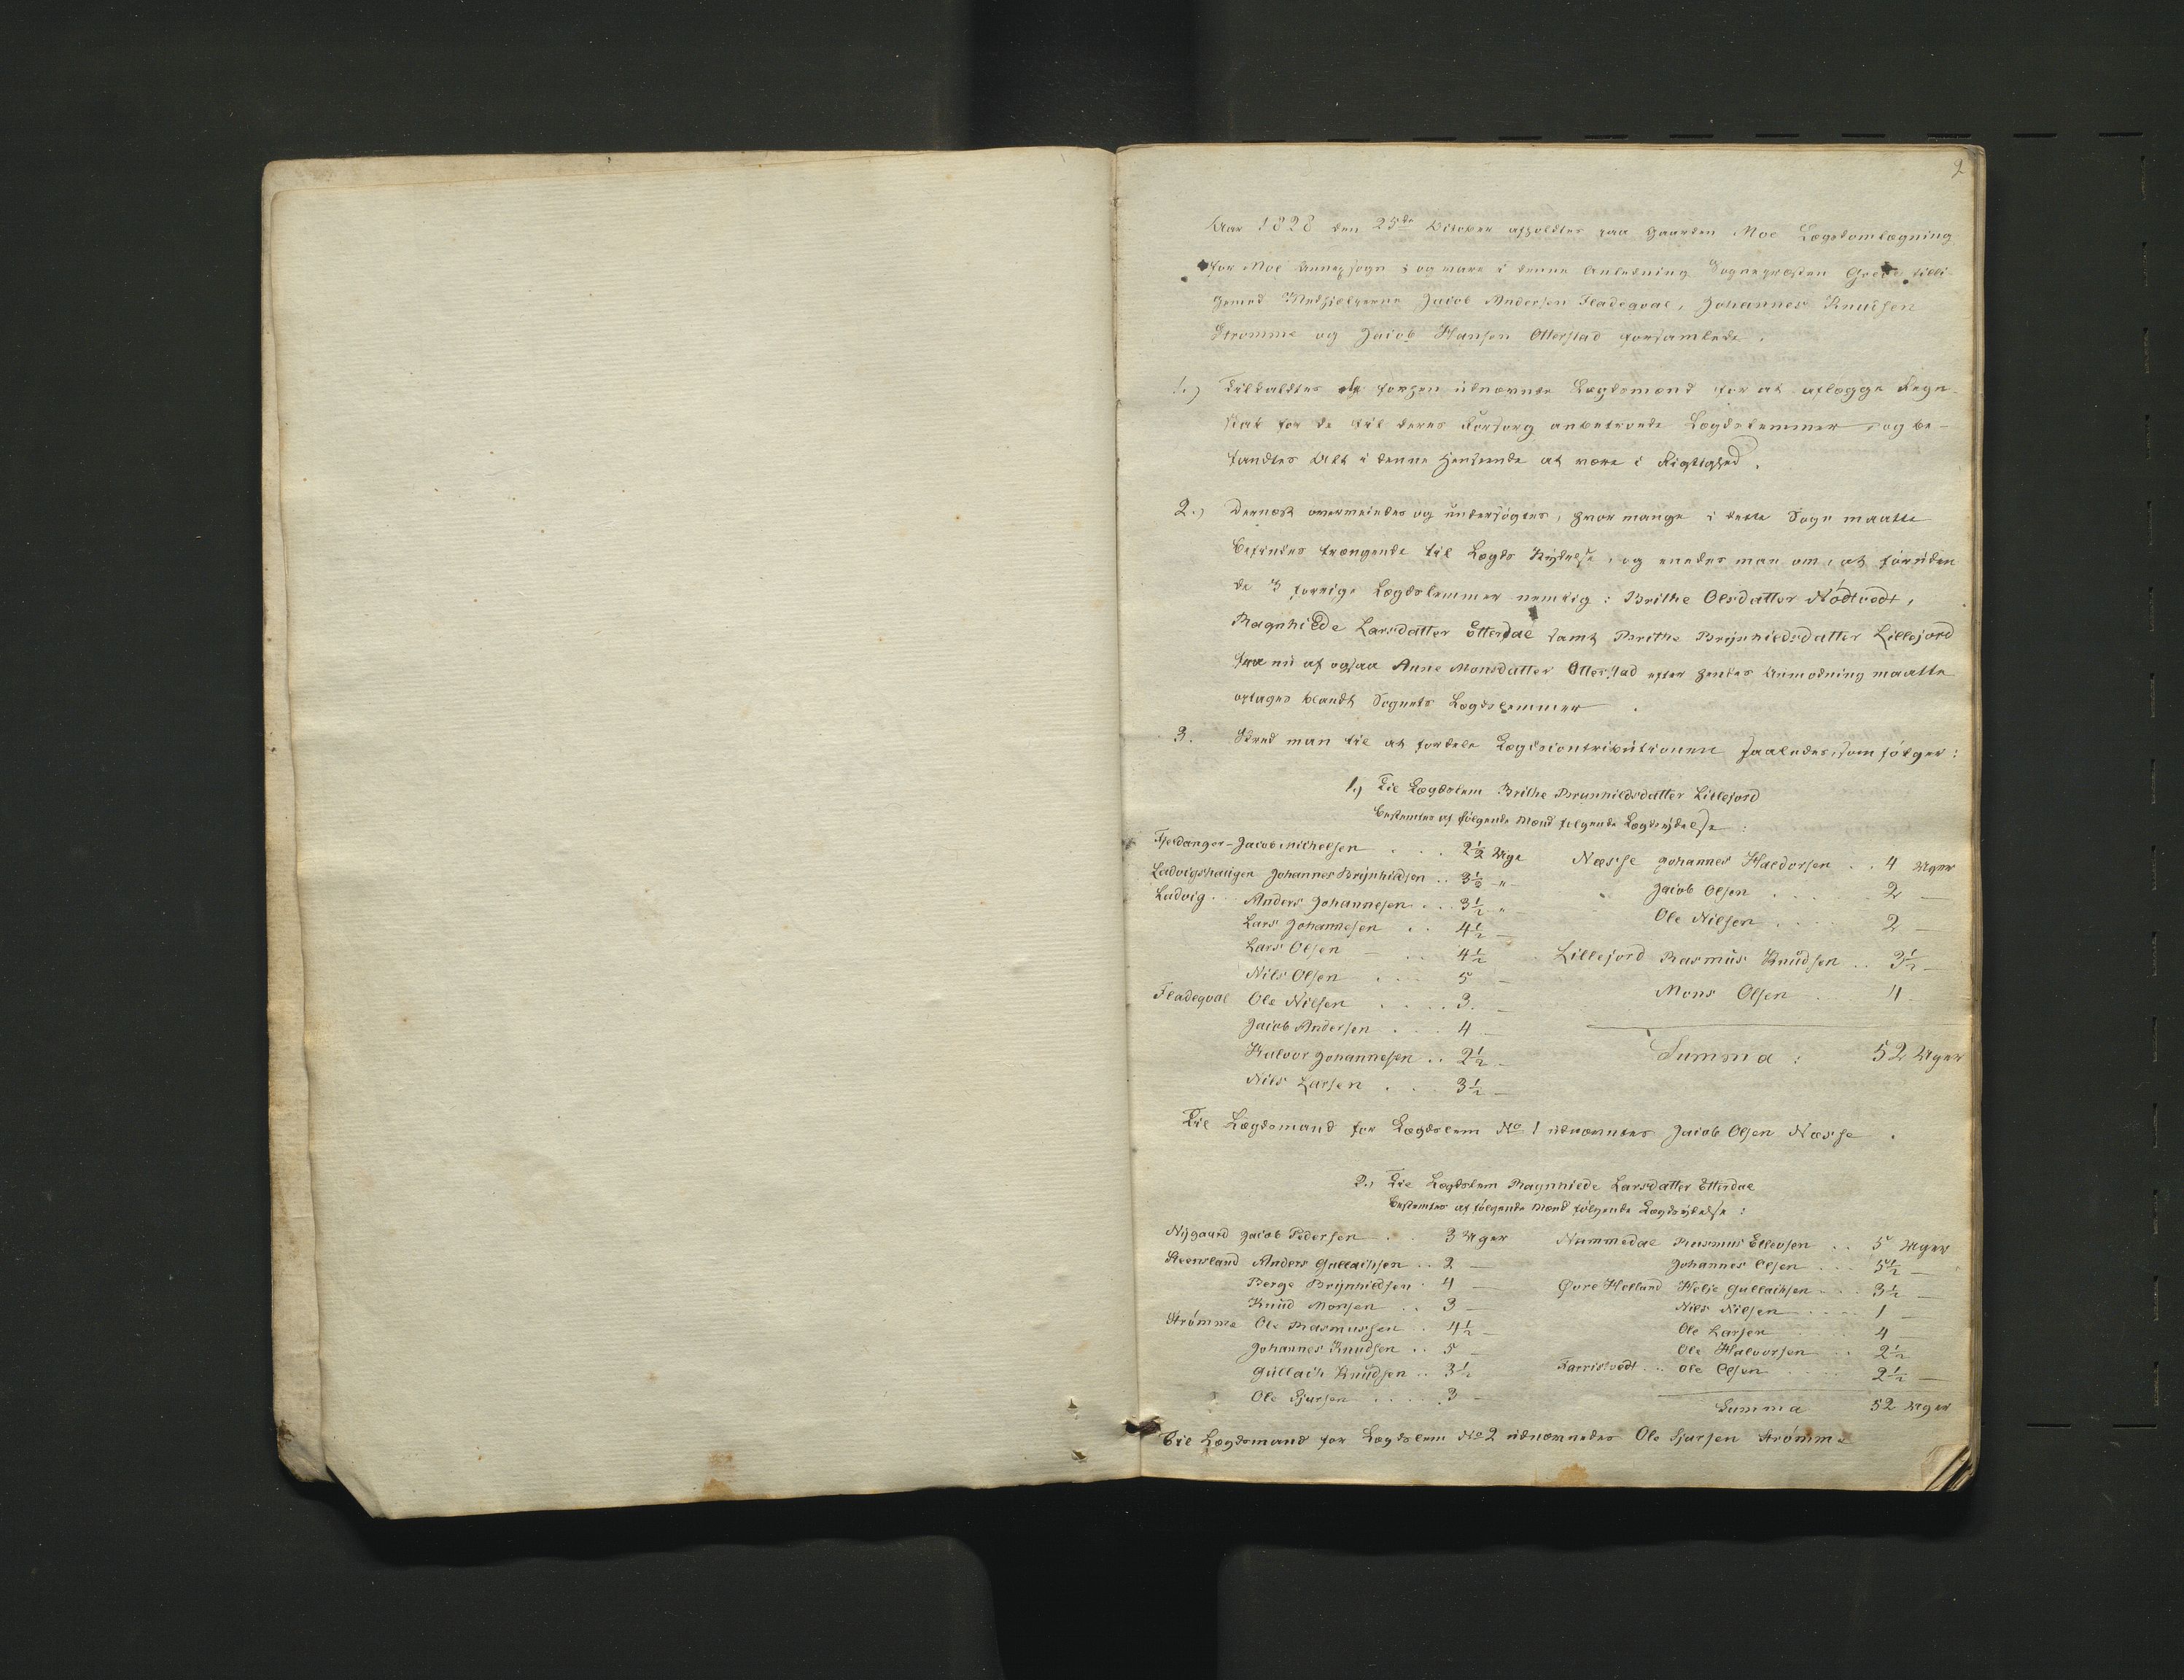 2
Aar 1828 den 25de October afholdtes paa Gaarden Moe Lægdsomlægning
for Moe Annexsogn; og vare i denne Anledning Sognepræsten Greve tilli-
gemed Medhjelperne Jacob Andersen Fladeqval, Johannes Knudsen
Strømme og Jacob Hansen Otterstad forsamlede.
1.) Tilkaldtes de forhen udnævnte Lægdsmænd for at aflægge Regn-
skab for de til deres Forsorg anbetroede Lægdslemmer og be-
fandtes Alt i denne Henseende at være i Rigtighed.
2.) Dernæst overveiedes og undersøgtes, hvor mange i dette Sogn maatte
befindes trængende til Lægds Nydelse, og enedes man om, at foruden
de 3 forrige Lægdslemmer nemlig: Brithe Olsdatter Nödtvedt,
Ragnhilde Larsdatter Etterdal samt Brithe Brynhildsdatter Lillejord
fra nu af ogsaa Anne Monsdatter Otterstad efter hendes Anmodning maatte
optages blandt Sognets Lægdslemmer.
3. Skred man til at fordele Lægdscontributionen saaledes som følger:
1.) Til Lægdslem Brithe Brunhildsdatter Lillejord
bestemtes af følgende Mænd følgende Lægdsydelse:
Fjeldanger - Jacob Michelsen . . . 2½ Uge
Ladvigshaugen Johannes Brynhildsen . . 3½ "
Ladvig . . Anders Johannesen . . . 3½ "
Lars Johannesen . . 4½ —
Lars Olsen — . . 4½
Nils Olsen . . . . 5 —
Fladeqval Ole Nilsen . . . . 3. —
Jacob Andersen . . . 4 —
Halvor Johannesen . . 2½ —
Nils Larsen . . . 3½ —
Næsse Johannes Haldorsen . . 4 Uger
Jacob Olsen . . . . 2 —
Ole Nilsen . . . . 2 —
Lillejord Rasmus Knudsen . . 3½ —
Mons Olsen . . 4.
Summa: 52 Uger
Til Lægdsmand for Lægdslem No 1 udnævntes Jacob Olsen Næsse.
2.) Til Lægdslem Ragnhilde Larsdatter Etterdal
bestemtes af følgende Mænd følgende Lægdsydelse:
Nygaard Jacob Pedersen . . 3 Uger
Steensland Anders Gullachsen . . 2 —
Berge Brynhildsen . 4 —
Knud Monsen . . 3 —
Strømme Ole Rasmussen . 4½ —
Johannes Knudsen . . 5 —
Gullach Knudsen . . 3½
Ole Sjursen . . . . 3 —
Nummedal Rasmus Ellevsen . . 5 Uger
Johannes Olsen . . . 5½ —
Øvre Helland Helje Gullachsen . . . 3½ —
Nils Nilsen . . . . 1 —
Ole Larsen . . 4 —
Ole Halvorsen . . 2½
Farristvedt . . Ole Olsen . . . . 2½ —
Summa 52 Uger
Til Lægdsmand for Lægdslem No 2 udnævnedes Ole Sjursen Strømme